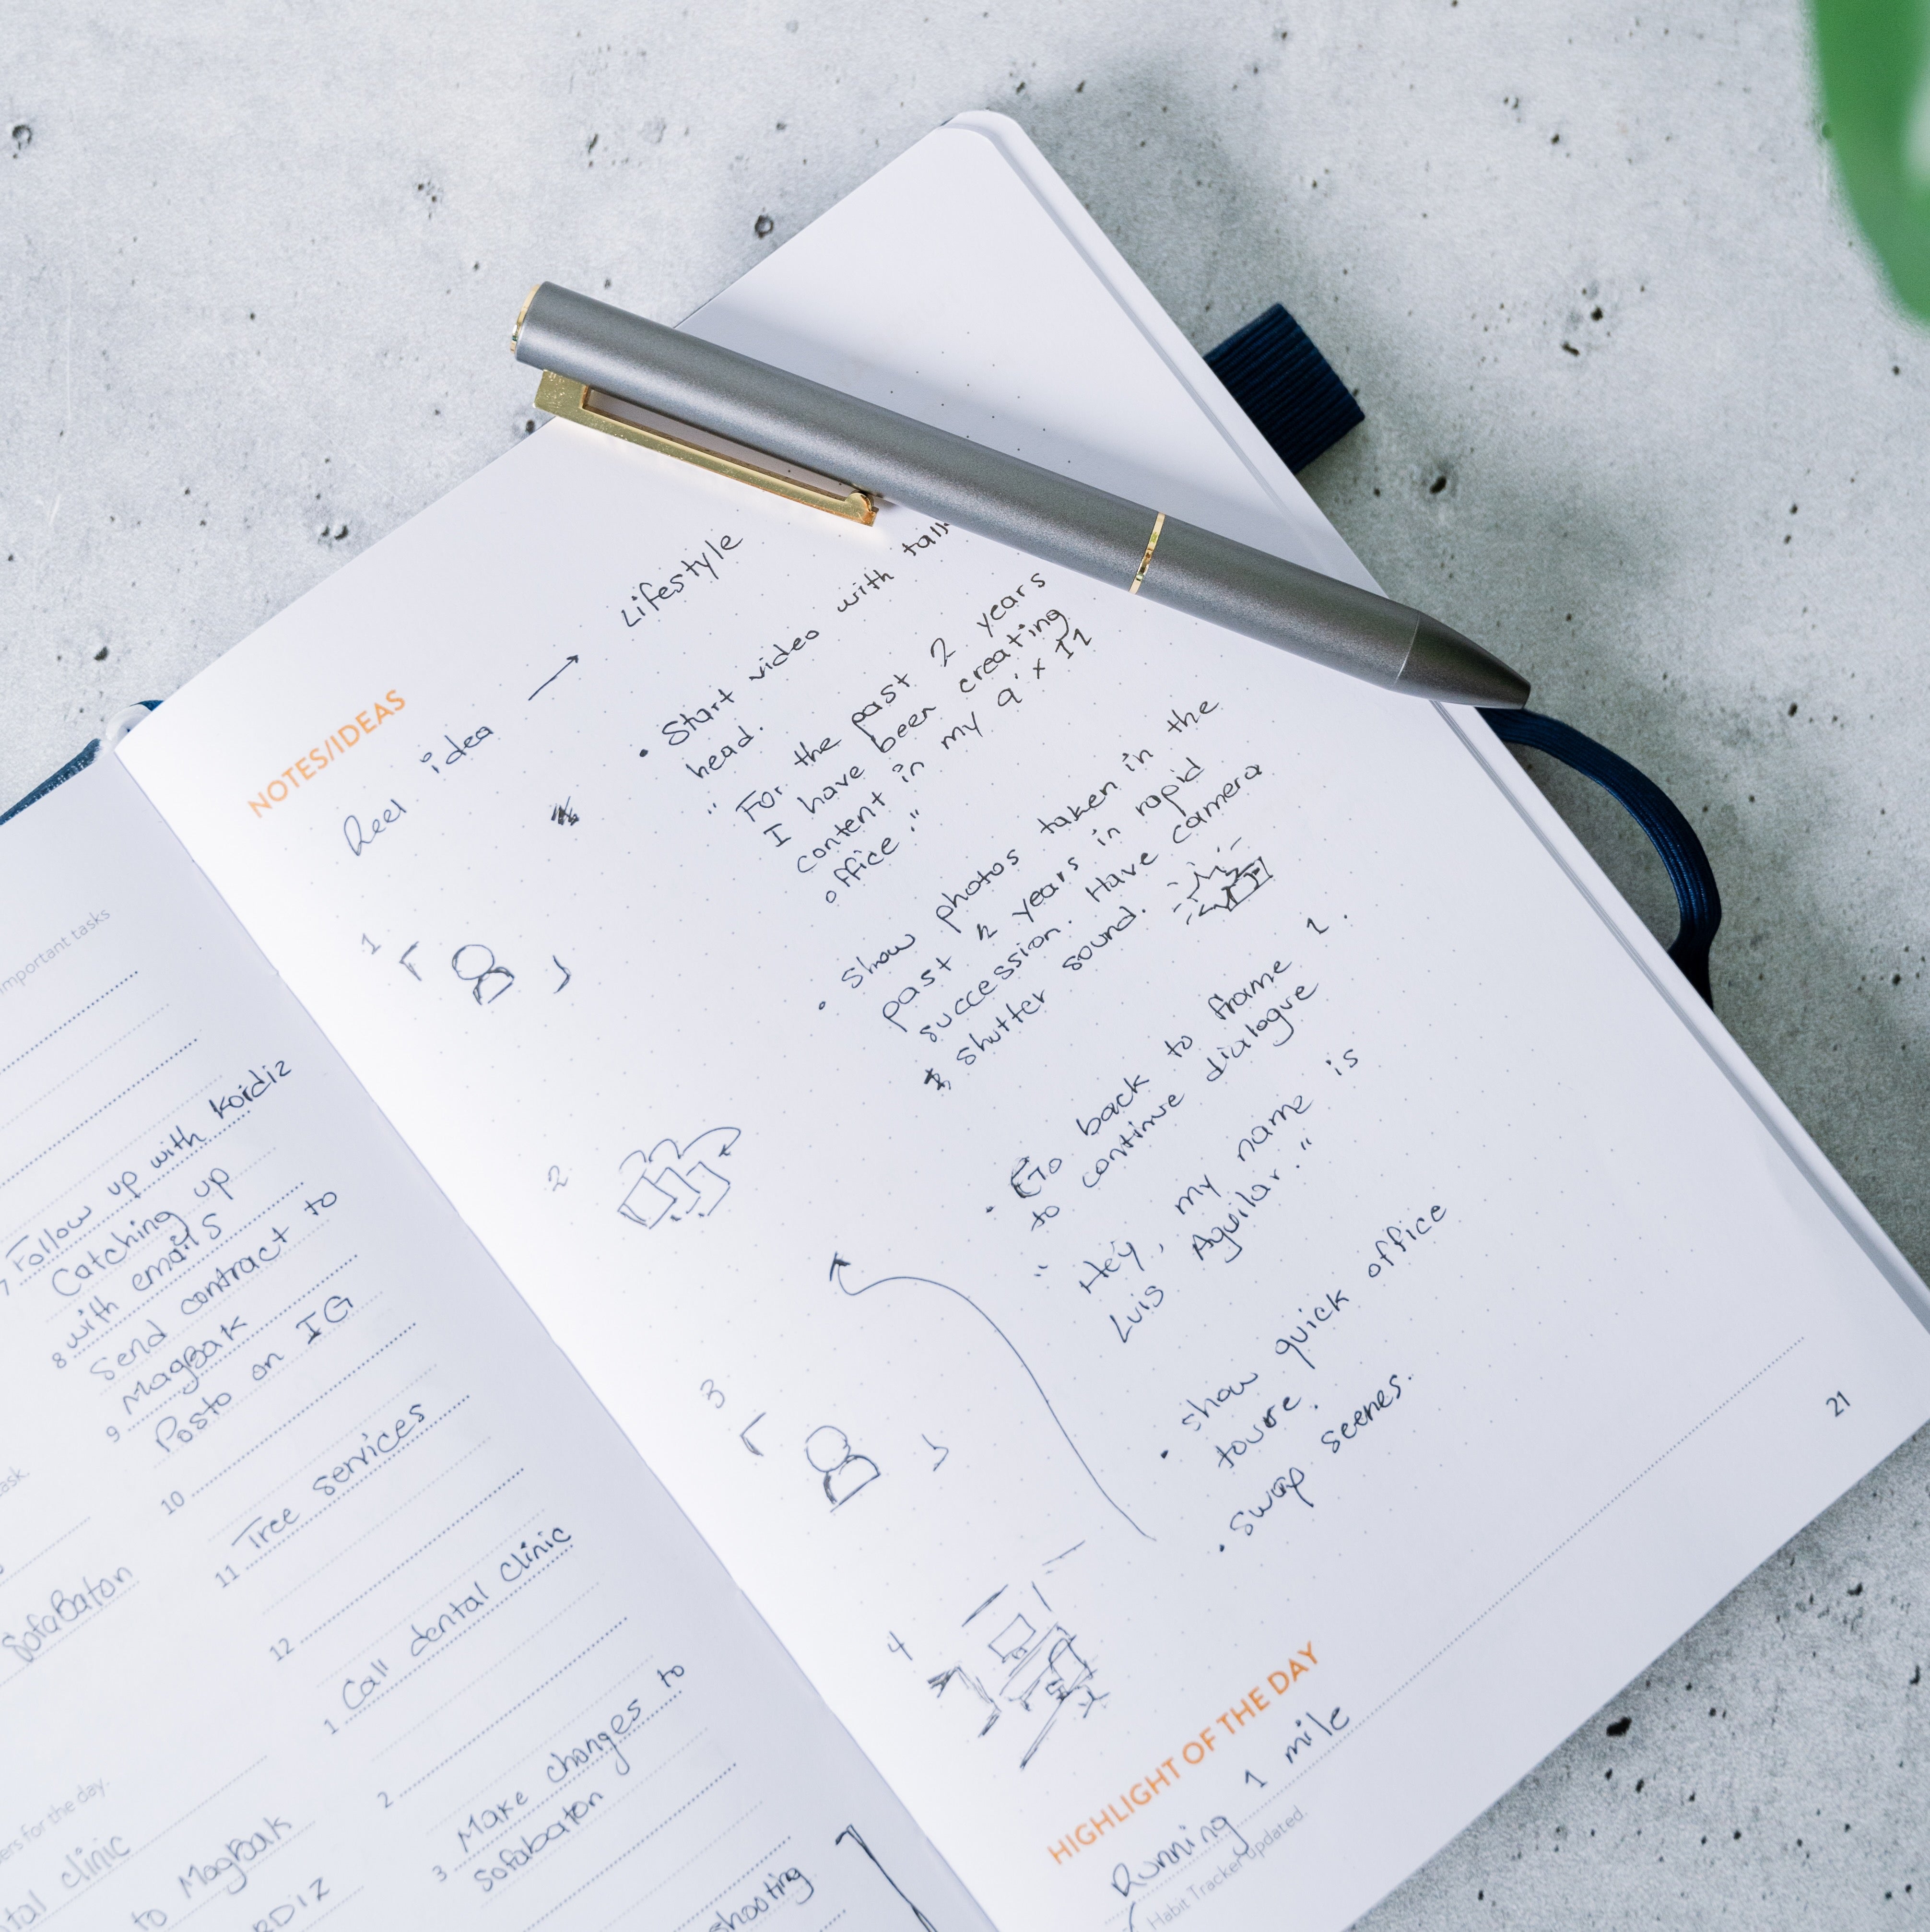 important tasks
7 Follow up with Kordiz
Catching up
8 with emails
Send contract to
9 MagBak
Posto on IG
10
11 Tree services
12
1 Call dental clinic
2
Make changes to
3 Sofabaton
shooting
ask.
SofaBaton
ers for the day.
tal clinic
to MagBak
RDIZ
NOTES/IDEAS
Reel idea → Lifestyle
• Start video with talk
head.
" For the past 2 years
I have been creating
content in my 9' x 11
office."
1
• Show photos taken in the
past 2 years in rapid
succession. Have camera
shutter sound.
2
• Go back to frame 1.
to continue dialogue
" Hey, my name is
Luis Aguilar."
3
• show quick office
toure.
• swap scenes.
4
21
HIGHLIGHT OF THE DAY
Running 1 mile
Habit Tracker updated.